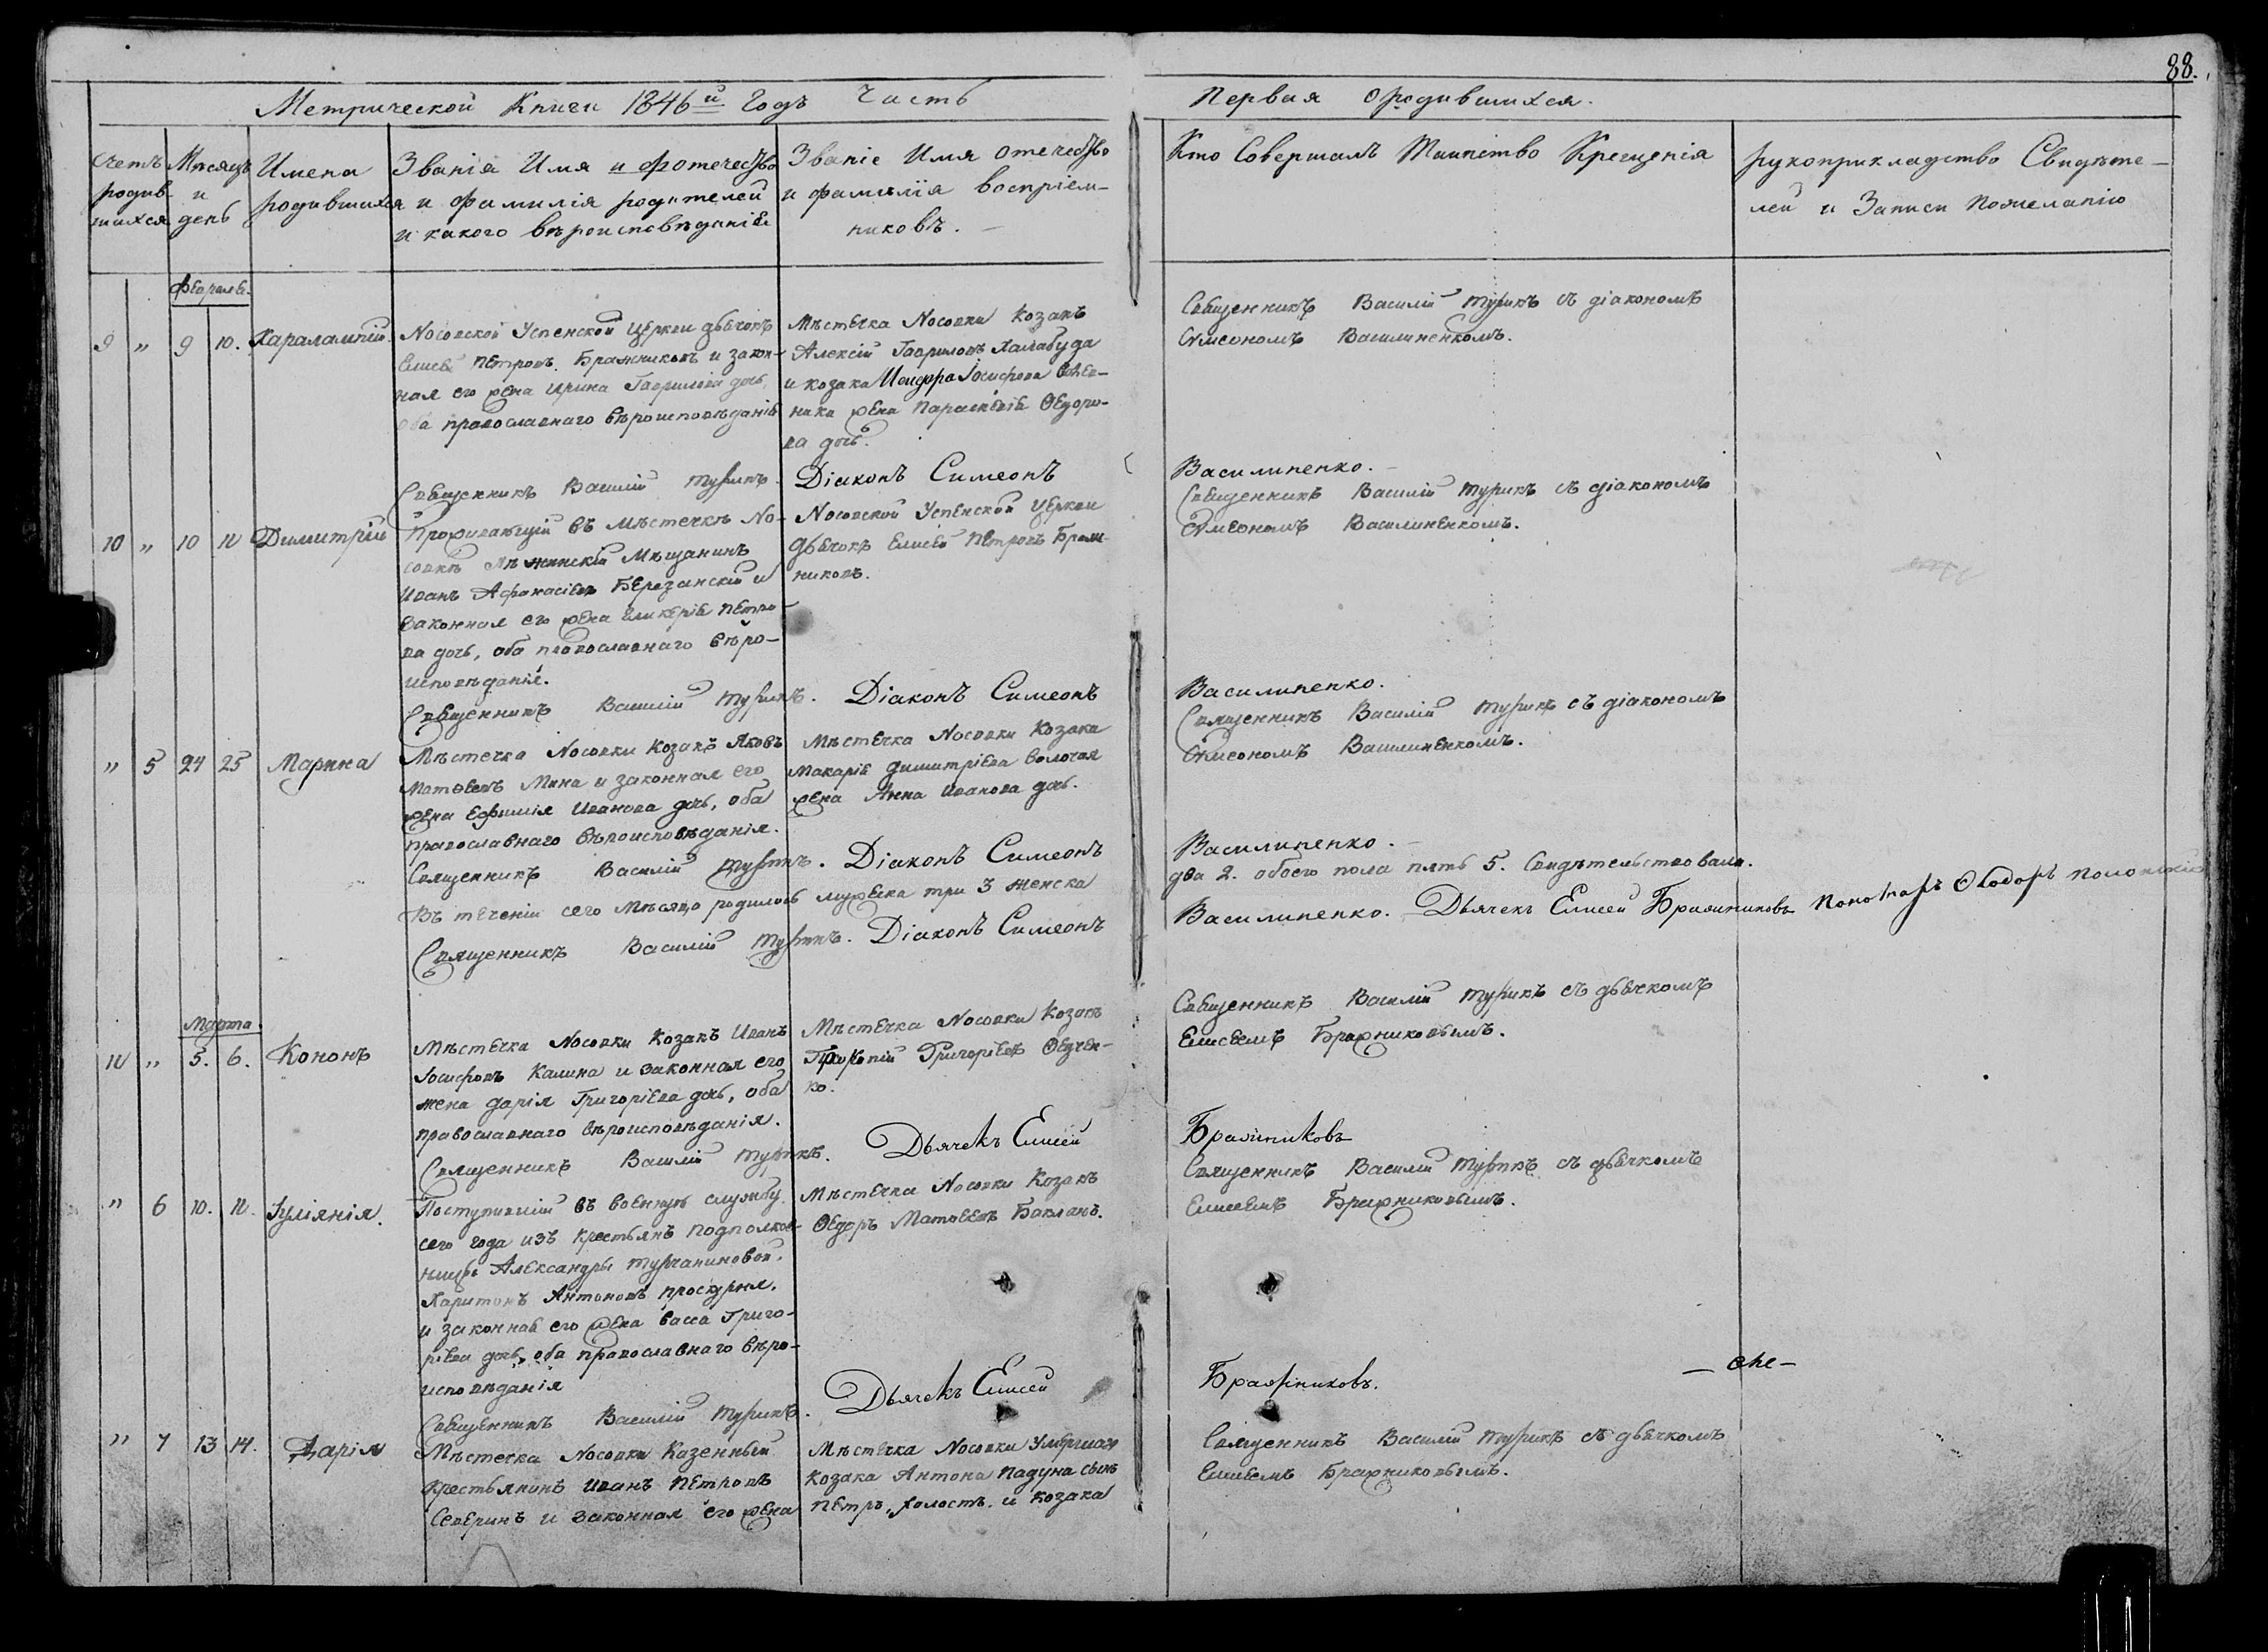 88.
Метрической Книги 1846й Годъ Часть
Первая о родившихся.
Счетъ родив-шихся
Мѣсяцъ и день
Имена родившихся
Званія Имя и Фотечество
и Фамилія родителей
и какого вѣроисповѣданія
Званіе Имя отечество
и фамилія воспріем-
никовъ.
Кто Совершалъ Таинство Крещенія
рукоприкладство Свидѣте-
лей и Записи Пожеланію
Февраля.
9 " 9 10. Харалампій
Носовской Успенской Церкви дьячокъ
Елисей Петровъ Бражниковъ и закон-
ная его жена Ирина Гаврилова дочь
оба православнаго вѣроисповѣданія
Мѣстечка Носовки Козакъ
Алексій Гавриловъ Халабуда
и козака Исидора Іосифова
жена Параскевія Ѳедоро-
ва дочь.
Священникъ Василій Турикъ съ діакономъ
Симеономъ Василиненкомъ.
Священникъ Василій Турикъ. Діаконъ Симеонъ Василиненко.
10 " 10 12 Димитрій
Проживающій въ мѣстечкѣ Но-
совкѣ Нѣжинскій Мѣщанинъ
Иванъ Афанасіевъ Березанскій и
законная его жена Гликерія Петро-
ва дочь, оба православнаго вѣро-
исповѣданія.
Носовской Успенской Церкви
дьячокъ Елисей Петровъ Браж-
никовъ.
Священникъ Василій Турикъ съ діакономъ
Симеономъ Василиненкомъ.
Священникъ Василій Турикъ. Діаконъ Симеонъ Василиненко.
" 5 24 25 Марина
Мѣстечка Носовки Козакъ Яковъ
Матѳеевъ Мина и законная его
жена Ефимія Иванова дочь, оба
православнаго вѣроисповѣданія.
Мѣстечка Носовки Козака
Макарія Димитріева Волочая
жена Анна Иванова дочь.
Священникъ Василій Турикъ съ діакономъ
Симеономъ Василиненкомъ.
Священникъ Василій Турикъ. Діаконъ Симеонъ Василиненко.
Въ теченіи сего Мѣсяца родилось мужеска три 3 женска два 2. обоего пола пять 5. Свидѣтельствовали.
Священникъ Василій Турикъ. Діаконъ Симеонъ Василиненко. Дьячекъ Елисей Бражниковъ Пономарь Ѳеодоръ
Марта
11 " 5. 6. Кононъ
Мѣстечка Носовки Козакъ Иванъ
Іосифовъ Калина и законная его
жена Дарія Григоріева дочь, оба
православнаго вѣроисповѣданія.
Мѣстечка Носовки Козакъ
Прокопій Григоріевъ
ко.
Священникъ Василій Турикъ съ дьячкомъ
Елисеемъ Бражниковымъ.
Священникъ Василій Турикъ. Дьячекъ Елисей Бражниковъ
" 6 10. 12. Іуліянія.
Поступившій въ военную службу
сего года изъ крестьянъ подполков-
ницы Александры Турчаниновой.
Харитонъ Антоновъ Проскурня.
и законная его жена Васса Григо-
ріева дочь, оба православнаго вѣро-
исповѣданія
Мѣстечка Носовки Козакъ
Ѳедоръ Матѳеевъ Бакланъ.
Священникъ Василій Турикъ съ дьячкомъ
Елисеемъ Бражниковымъ.
Священникъ Василій Турикъ. Дьячекъ Елисей Бражниковъ.
" 7 13 14. Дарія
Мѣстечка Носовки Казенный
крестьянинъ Иванъ Петровъ
Северинъ и законная его жена
Мѣстечка Носовки Умершаго
Козака Антона Падуна сынъ
Петръ, холостъ. и козака
Священникъ Василій Турикъ съ дьячкомъ
Елисеемъ Бражниковымъ.